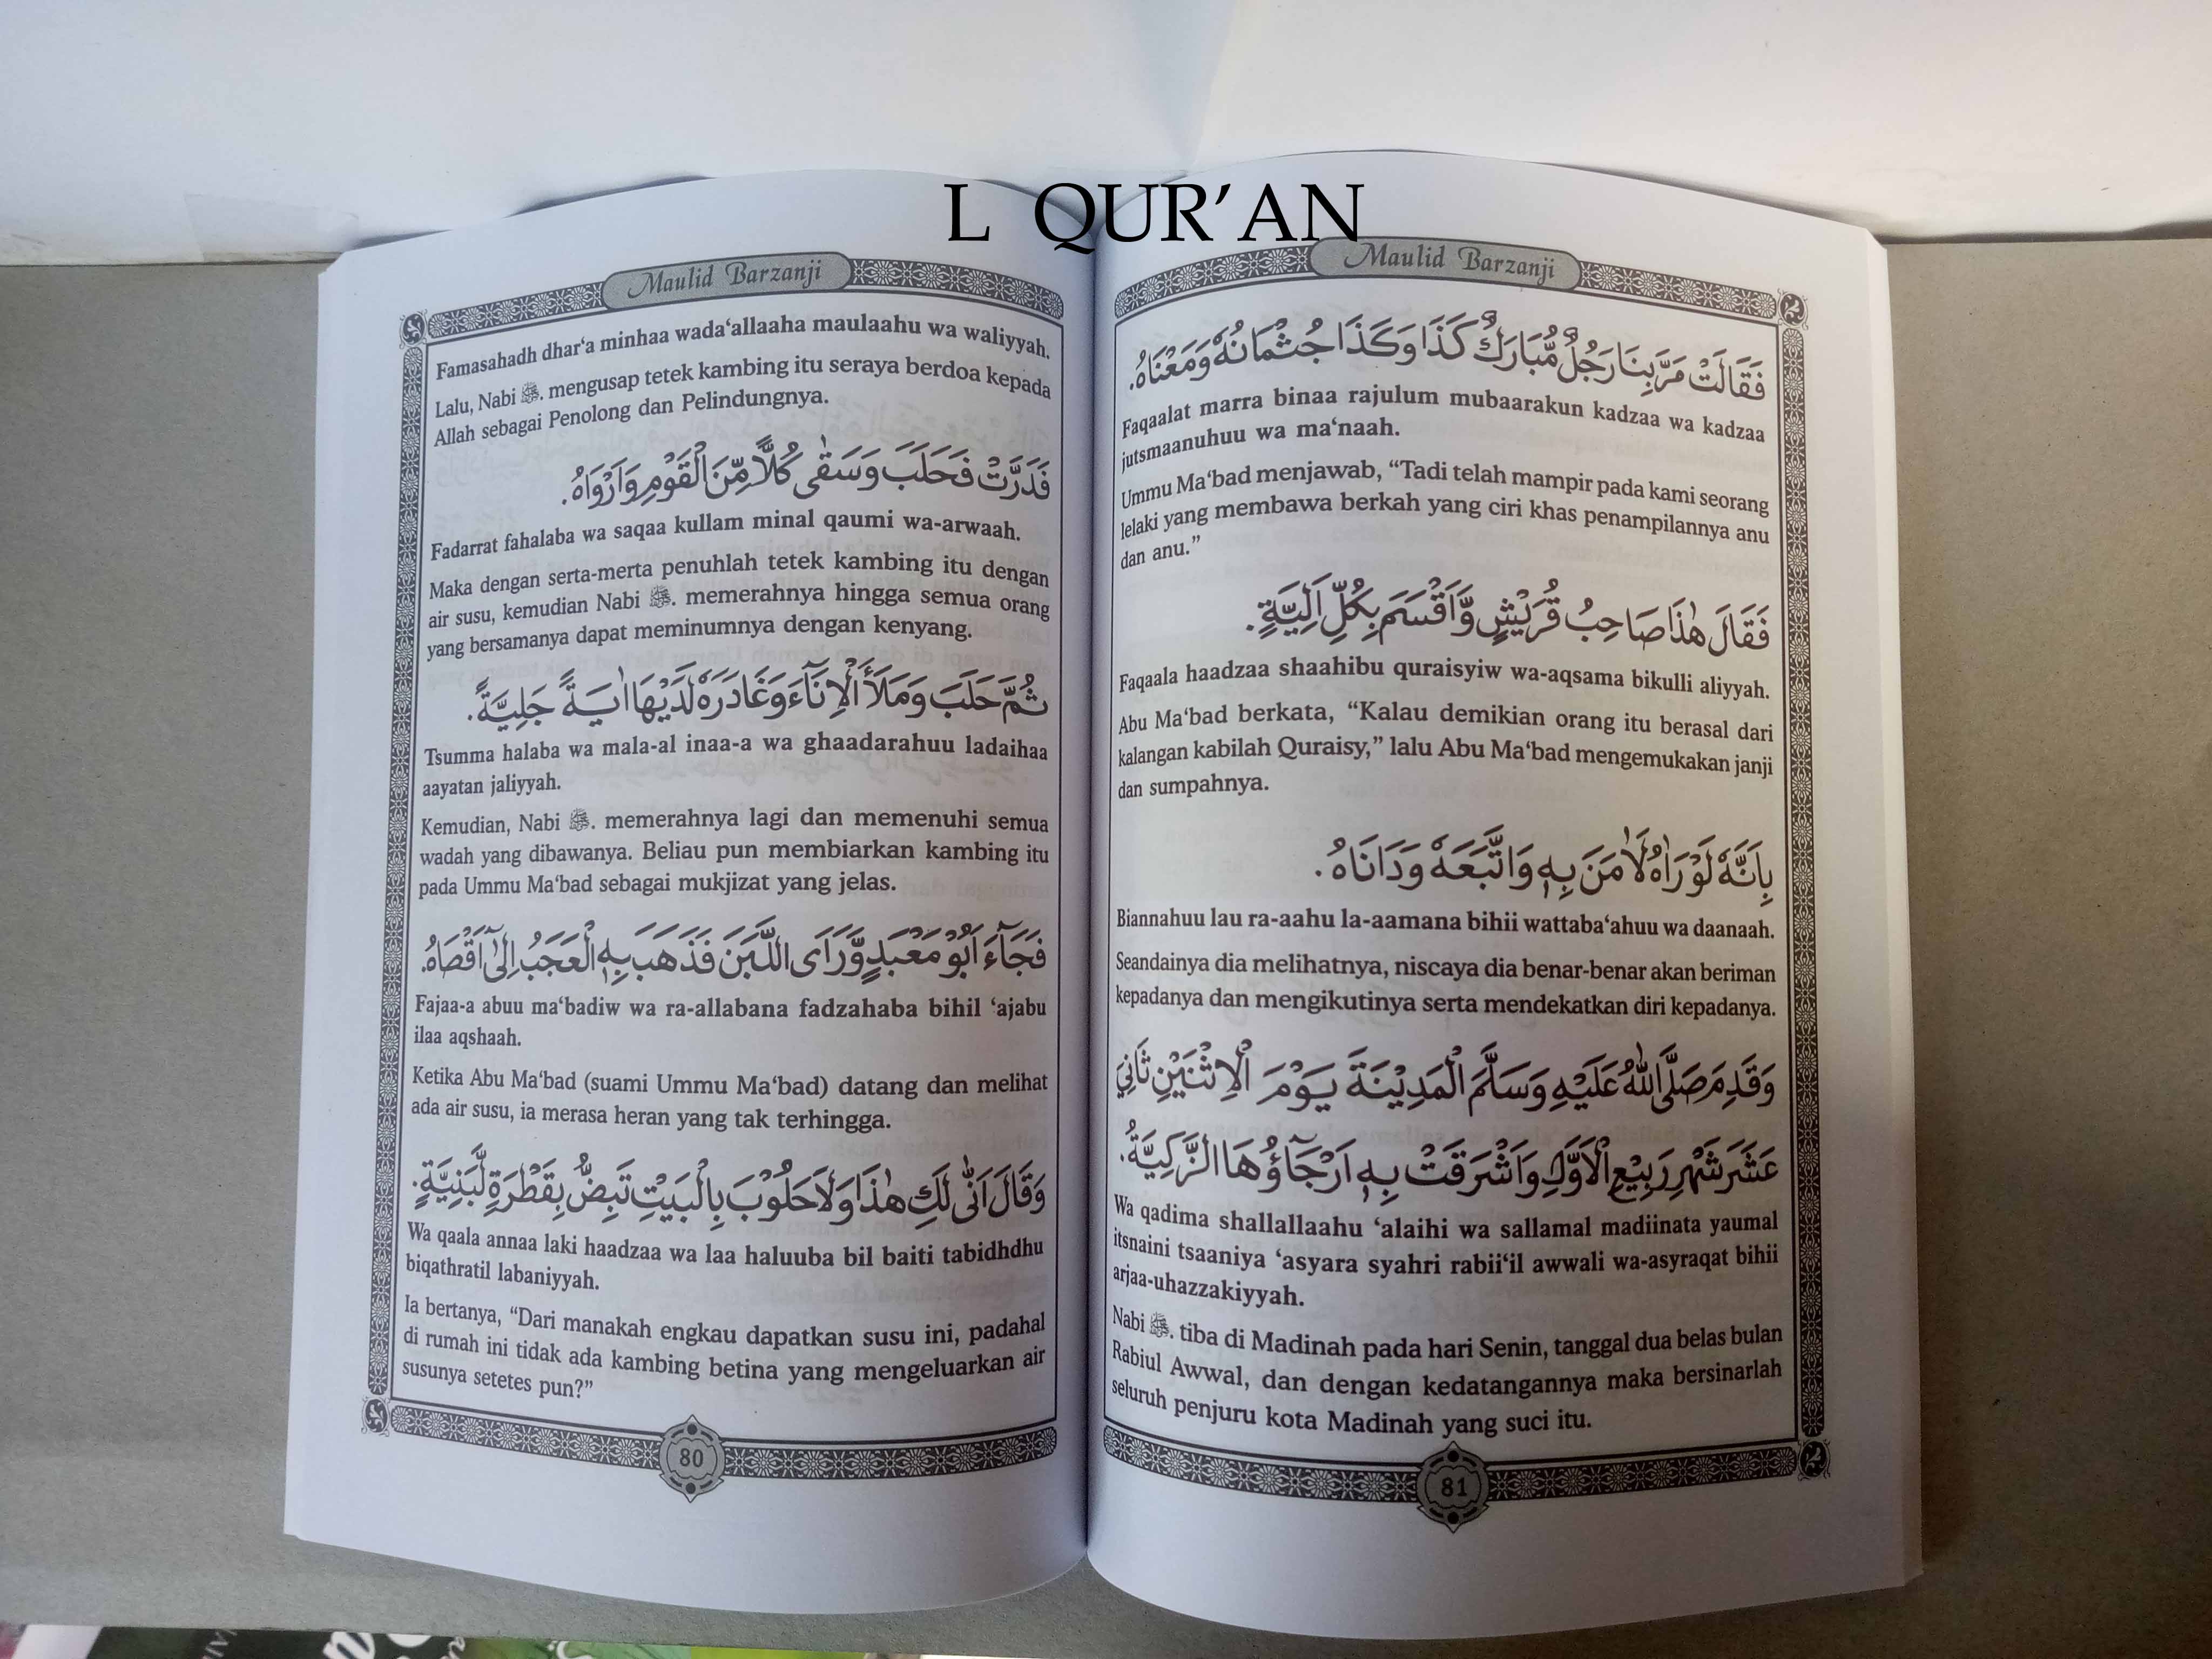 L QUR’AN
Maulid Barzanji
Famasahadh dhar‘a minhaa wada‘allaaha maulaahu wa waliyyah.
Lalu, Nabi ﷺ. mengusap tetek kambing itu seraya berdoa kepada
Allah sebagai Penolong dan Pelindungnya.
فَدَرَّتْ فَحَلَبَ وَسَقٰى كُلًّا مِّنَ الْقَوْمِ وَاَرْوَاهُ.
Fadarrat fahalaba wa saqaa kullam minal qaumi wa-arwaah.
Maka dengan serta-merta penuhlah tetek kambing itu dengan
air susu, kemudian Nabi ﷺ. memerahnya hingga semua orang
yang bersamanya dapat meminumnya dengan kenyang.
ثُمَّ حَلَبَ وَمَلَأَ الْإِنَآءَ وَغَادَرَهٗ لَدَيْهَا اٰيَةً جَلِيَّةً.
Tsumma halaba wa mala-al inaa-a wa ghaadarahuu ladaihaa
aayatan jaliyyah.
Kemudian, Nabi ﷺ. memerahnya lagi dan memenuhi semua
wadah yang dibawanya. Beliau pun membiarkan kambing itu
pada Ummu Ma‘bad sebagai mukjizat yang jelas.
فَجَآءَ اَبُوْ مَعْبَدٍ وَّرَاَى اللَّبَنَ فَذَهَبَ بِهِ الْعَجَبُ اِلٰٓى اَقْصَاهُ.
Fajaa-a abuu ma‘badiw wa ra-allabana fadzahaba bihil ‘ajabu
ilaa aqshaah.
Ketika Abu Ma‘bad (suami Ummu Ma‘bad) datang dan melihat
ada air susu, ia merasa heran yang tak terhingga.
وَقَالَ اَنّٰى لَكِ هٰذَا وَلَا حَلُوْبَ بِالْبَيْتِ تَبِضُّ بِقَطْرَةٍ لَّبَنِيَّةٍ.
Wa qaala annaa laki haadzaa wa laa haluuba bil baiti tabidhdhu
biqathratil labaniyyah.
Ia bertanya, “Dari manakah engkau dapatkan susu ini, padahal
di rumah ini tidak ada kambing betina yang mengeluarkan air
susunya setetes pun?”
80
Maulid Barzanji
فَقَالَتْ مَرَّ بِنَا رَجُلٌ مُّبَارَكٌ كَذَا وَكَذَا جُثْمَانُهٗ وَمَعْنَاهُ.
Faqaalat marra binaa rajulum mubaarakun kadzaa wa kadzaa
jutsmaanuhuu wa ma‘naah.
Ummu Ma‘bad menjawab, “Tadi telah mampir pada kami seorang
lelaki yang membawa berkah yang ciri khas penampilannya anu
dan anu.”
فَقَالَ هٰذَا صَاحِبُ قُرَيْشٍ وَّاَقْسَمَ بِكُلِّ اَلِيَّةٍ.
Faqaala haadzaa shaahibu quraisyiw wa-aqsama bikulli aliyyah.
Abu Ma‘bad berkata, “Kalau demikian orang itu berasal dari
kalangan kabilah Quraisy,” lalu Abu Ma‘bad mengemukakan janji
dan sumpahnya.
بِاَنَّهٗ لَوْ رَاٰهُ لَاٰمَنَ بِهٖ وَاتَّبَعَهٗ وَدَانَاهُ.
Biannahuu lau ra-aahu la-aamana bihii wattaba‘ahuu wa daanaah.
Seandainya dia melihatnya, niscaya dia benar-benar akan beriman
kepadanya dan mengikutinya serta mendekatkan diri kepadanya.
وَقَدِمَ صَلَّى اللّٰهُ عَلَيْهِ وَسَلَّمَ الْمَدِيْنَةَ يَوْمَ الْاِثْنَيْنِ ثَانِيَ
عَشَرَ شَهْرِ رَبِيْعِ الْاَوَّلِ وَاَشْرَقَتْ بِهٖ اَرْجَآؤُهَا الزَّكِيَّةُ.
Wa qadima shallallaahu ‘alaihi wa sallamal madiinata yaumal
itsnaini tsaaniya ‘asyara syahri rabii‘il awwali wa-asyraqat bihii
arjaa-uhazzakiyyah.
Nabi ﷺ. tiba di Madinah pada hari Senin, tanggal dua belas bulan
Rabiul Awwal, dan dengan kedatangannya maka bersinarlah
seluruh penjuru kota Madinah yang suci itu.
81